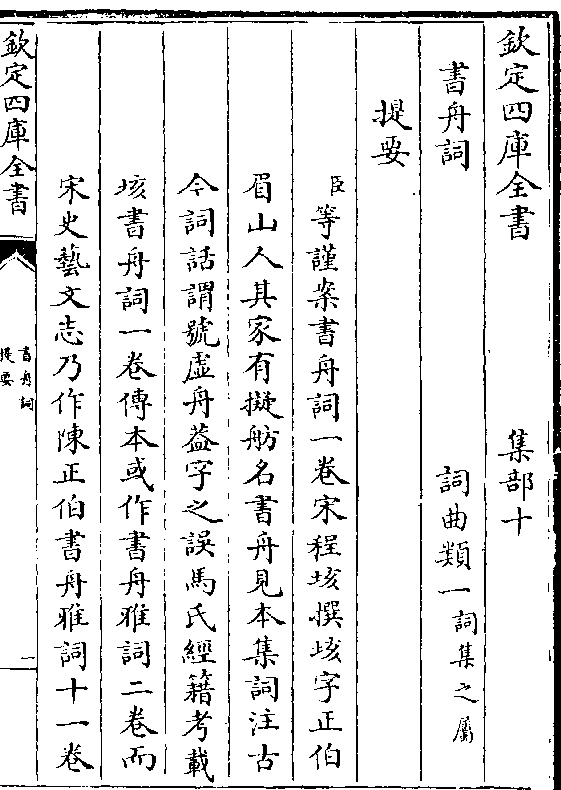 欽定四庫全書　集部十
書舟詞　詞曲類一詞集之屬
提要
臣等謹案書舟詞一卷宋程垓撰垓字正伯
眉山人其家有擬舫名書舟見本集詞注古
今詞話謂號虛舟葢字之誤馬氏經籍考載
垓書舟詞一卷傳本或作書舟雅詞二卷而
宋史藝文志乃作陳正伯書舟雅詞十一卷
欽定四庫全書
書舟詞
提要
一